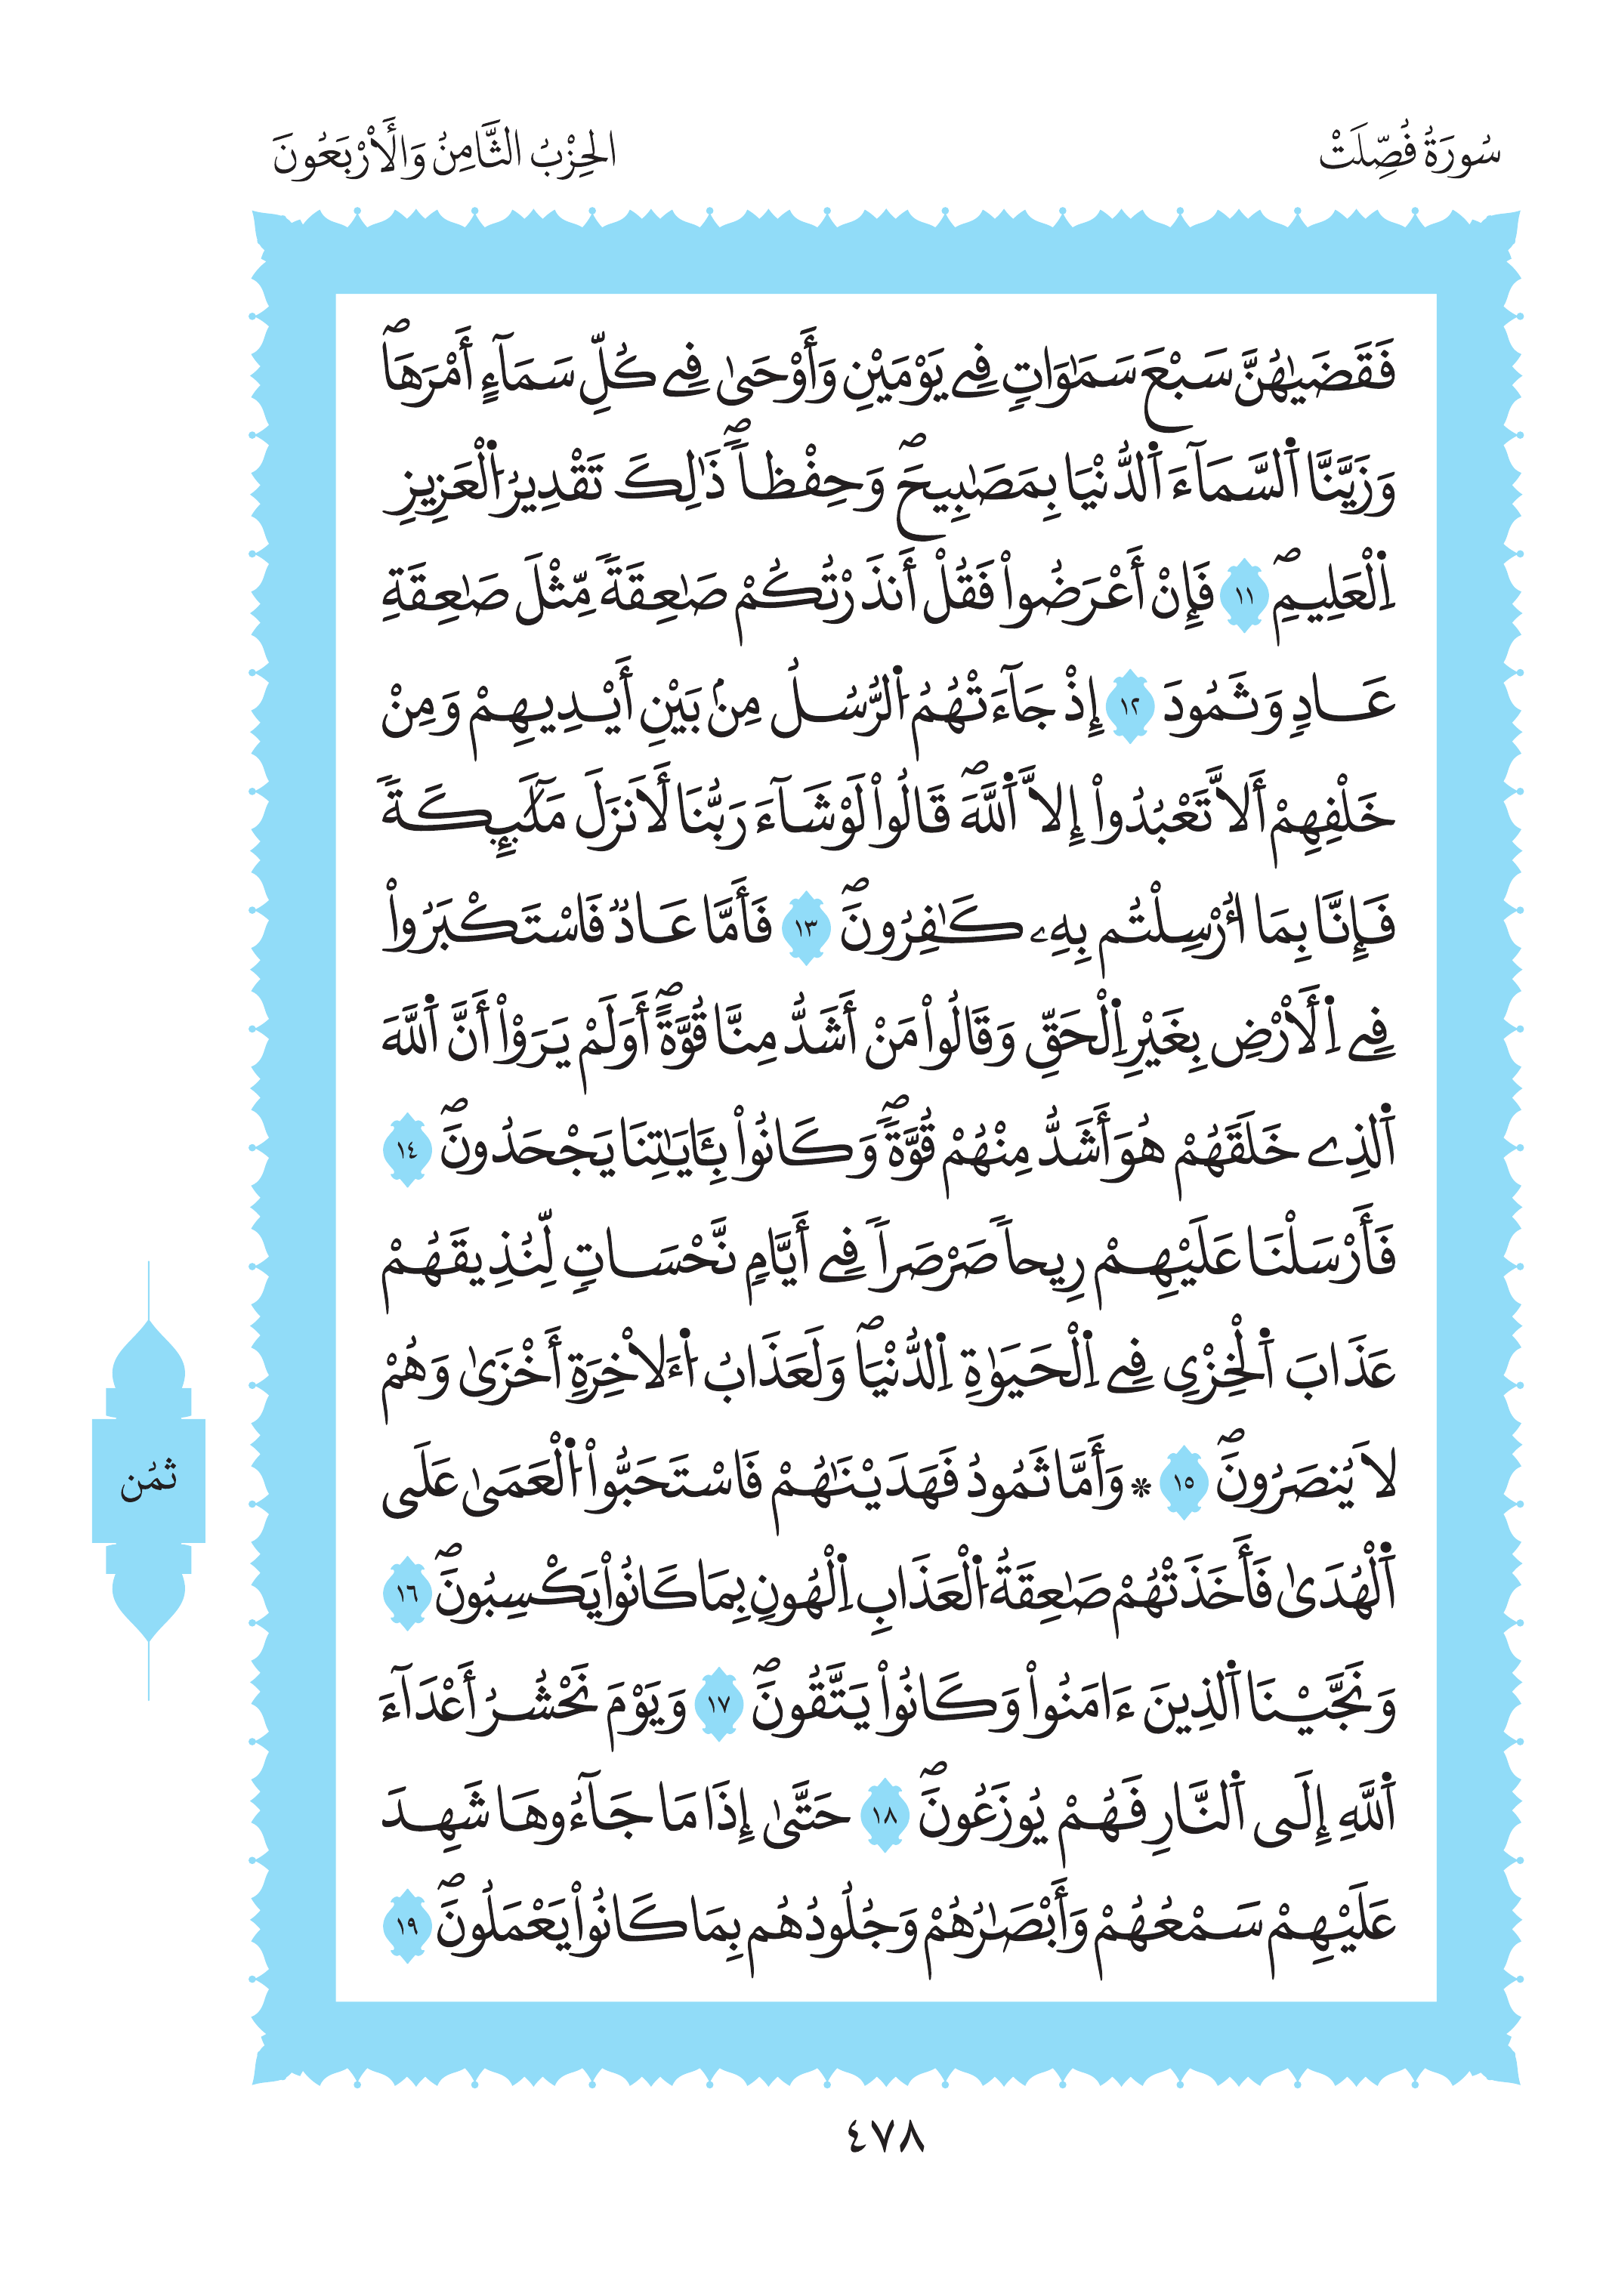 سُورَةُ فُصِّلَتْ
الحِزْبُ الثَّامِنُ وَالأَرْبَعُونَ
فَقَضَيٰهُنَّ سَبْعَ سَمَٰوَاتٖ فِے يَوْمَيْنِ وَأَوْحَيٰ فِے كُلِّ سَمَآءٍ أَمْرَهَاۖ
وَزَيَّنَّا اَ۬لسَّمَآءَ اَ۬لدُّنْيَا بِمَصَٰبِيحَۖ وَحِفْظاٗۖ ذَٰلِكَ تَقْدِيرُ اُ۬لْعَزِيزِ
اِ۬لْعَلِيمِۖ ١١ فَإِنْ أَعْرَضُواْ فَقُلْ أَنذَرْتُكُمْ صَٰعِقَةٗ مِّثْلَ صَٰعِقَةِ
عَادٖ وَثَمُودَ ١٢ إِذْ جَآءَتْهُمُ اُ۬لرُّسُلُ مِنۢ بَيْنِ أَيْدِيهِمْ وَمِنْ
خَلْفِهِمْ أَلَّا تَعْبُدُواْ إِلَّا اَ۬للَّهَۖ قَالُواْ لَوْ شَآءَ رَبُّنَا لَأَنزَلَ مَلَٰٓئِكَةٗ
فَإِنَّا بِمَا أُرْسِلْتُم بِهِۦ كَٰفِرُونَۖ ١٣ فَأَمَّا عَادٞ فَاسْتَكْبَرُواْ
فِے اِ۬لْأَرْضِ بِغَيْرِ اِ۬لْحَقِّ وَقَالُواْ مَنْ أَشَدُّ مِنَّا قُوَّةًۖ أَوَلَمْ يَرَوْاْ أَنَّ اَ۬للَّهَ
اَ۬لذِے خَلَقَهُمْ هُوَ أَشَدُّ مِنْهُمْ قُوَّةٗۖ وَكَانُواْ بِـَٔايَٰتِنَا يَجْحَدُونَۖ ١٤
فَأَرْسَلْنَا عَلَيْهِمْ رِيحاٗ صَرْصَراٗ فِے أَيَّامٖ نَّحْسَاتٖ لِّنُذِيقَهُمْ
عَذَابَ اَ۬لْخِزْيِ فِے اِ۬لْحَيَوٰةِ اِ۬لدُّنْيَاۖ وَلَعَذَابُ اُ۬لَاخِرَةِ أَخْزَيٰ وَهُمْ
لَا يُنصَرُونَۖ ١٥ * وَأَمَّا ثَمُودُ فَهَدَيْنَٰهُمْ فَاسْتَحَبُّواْ اُ۬لْعَمَيٰ عَلَي
اَ۬لْهُدَيٰ فَأَخَذَتْهُمْ صَٰعِقَةُ اُ۬لْعَذَابِ اِ۬لْهُونِ بِمَا كَانُواْ يَكْسِبُونَۖ ١٦
وَنَجَّيْنَا اَ۬لذِينَ ءَامَنُواْ وَكَانُواْ يَتَّقُونَۖ ١٧ وَيَوْمَ نَحْشُرُ أَعْدَآءَ
اَ۬للَّهِ إِلَي اَ۬لنَّارِ فَهُمْ يُوزَعُونَۖ ١٨ حَتَّيٰ إِذَا مَا جَآءُوهَا شَهِدَ
عَلَيْهِمْ سَمْعُهُمْ وَأَبْصَٰرُهُمْ وَجُلُودُهُم بِمَا كَانُواْ يَعْمَلُونَۖ ١٩
ثمُن
٤٧٨